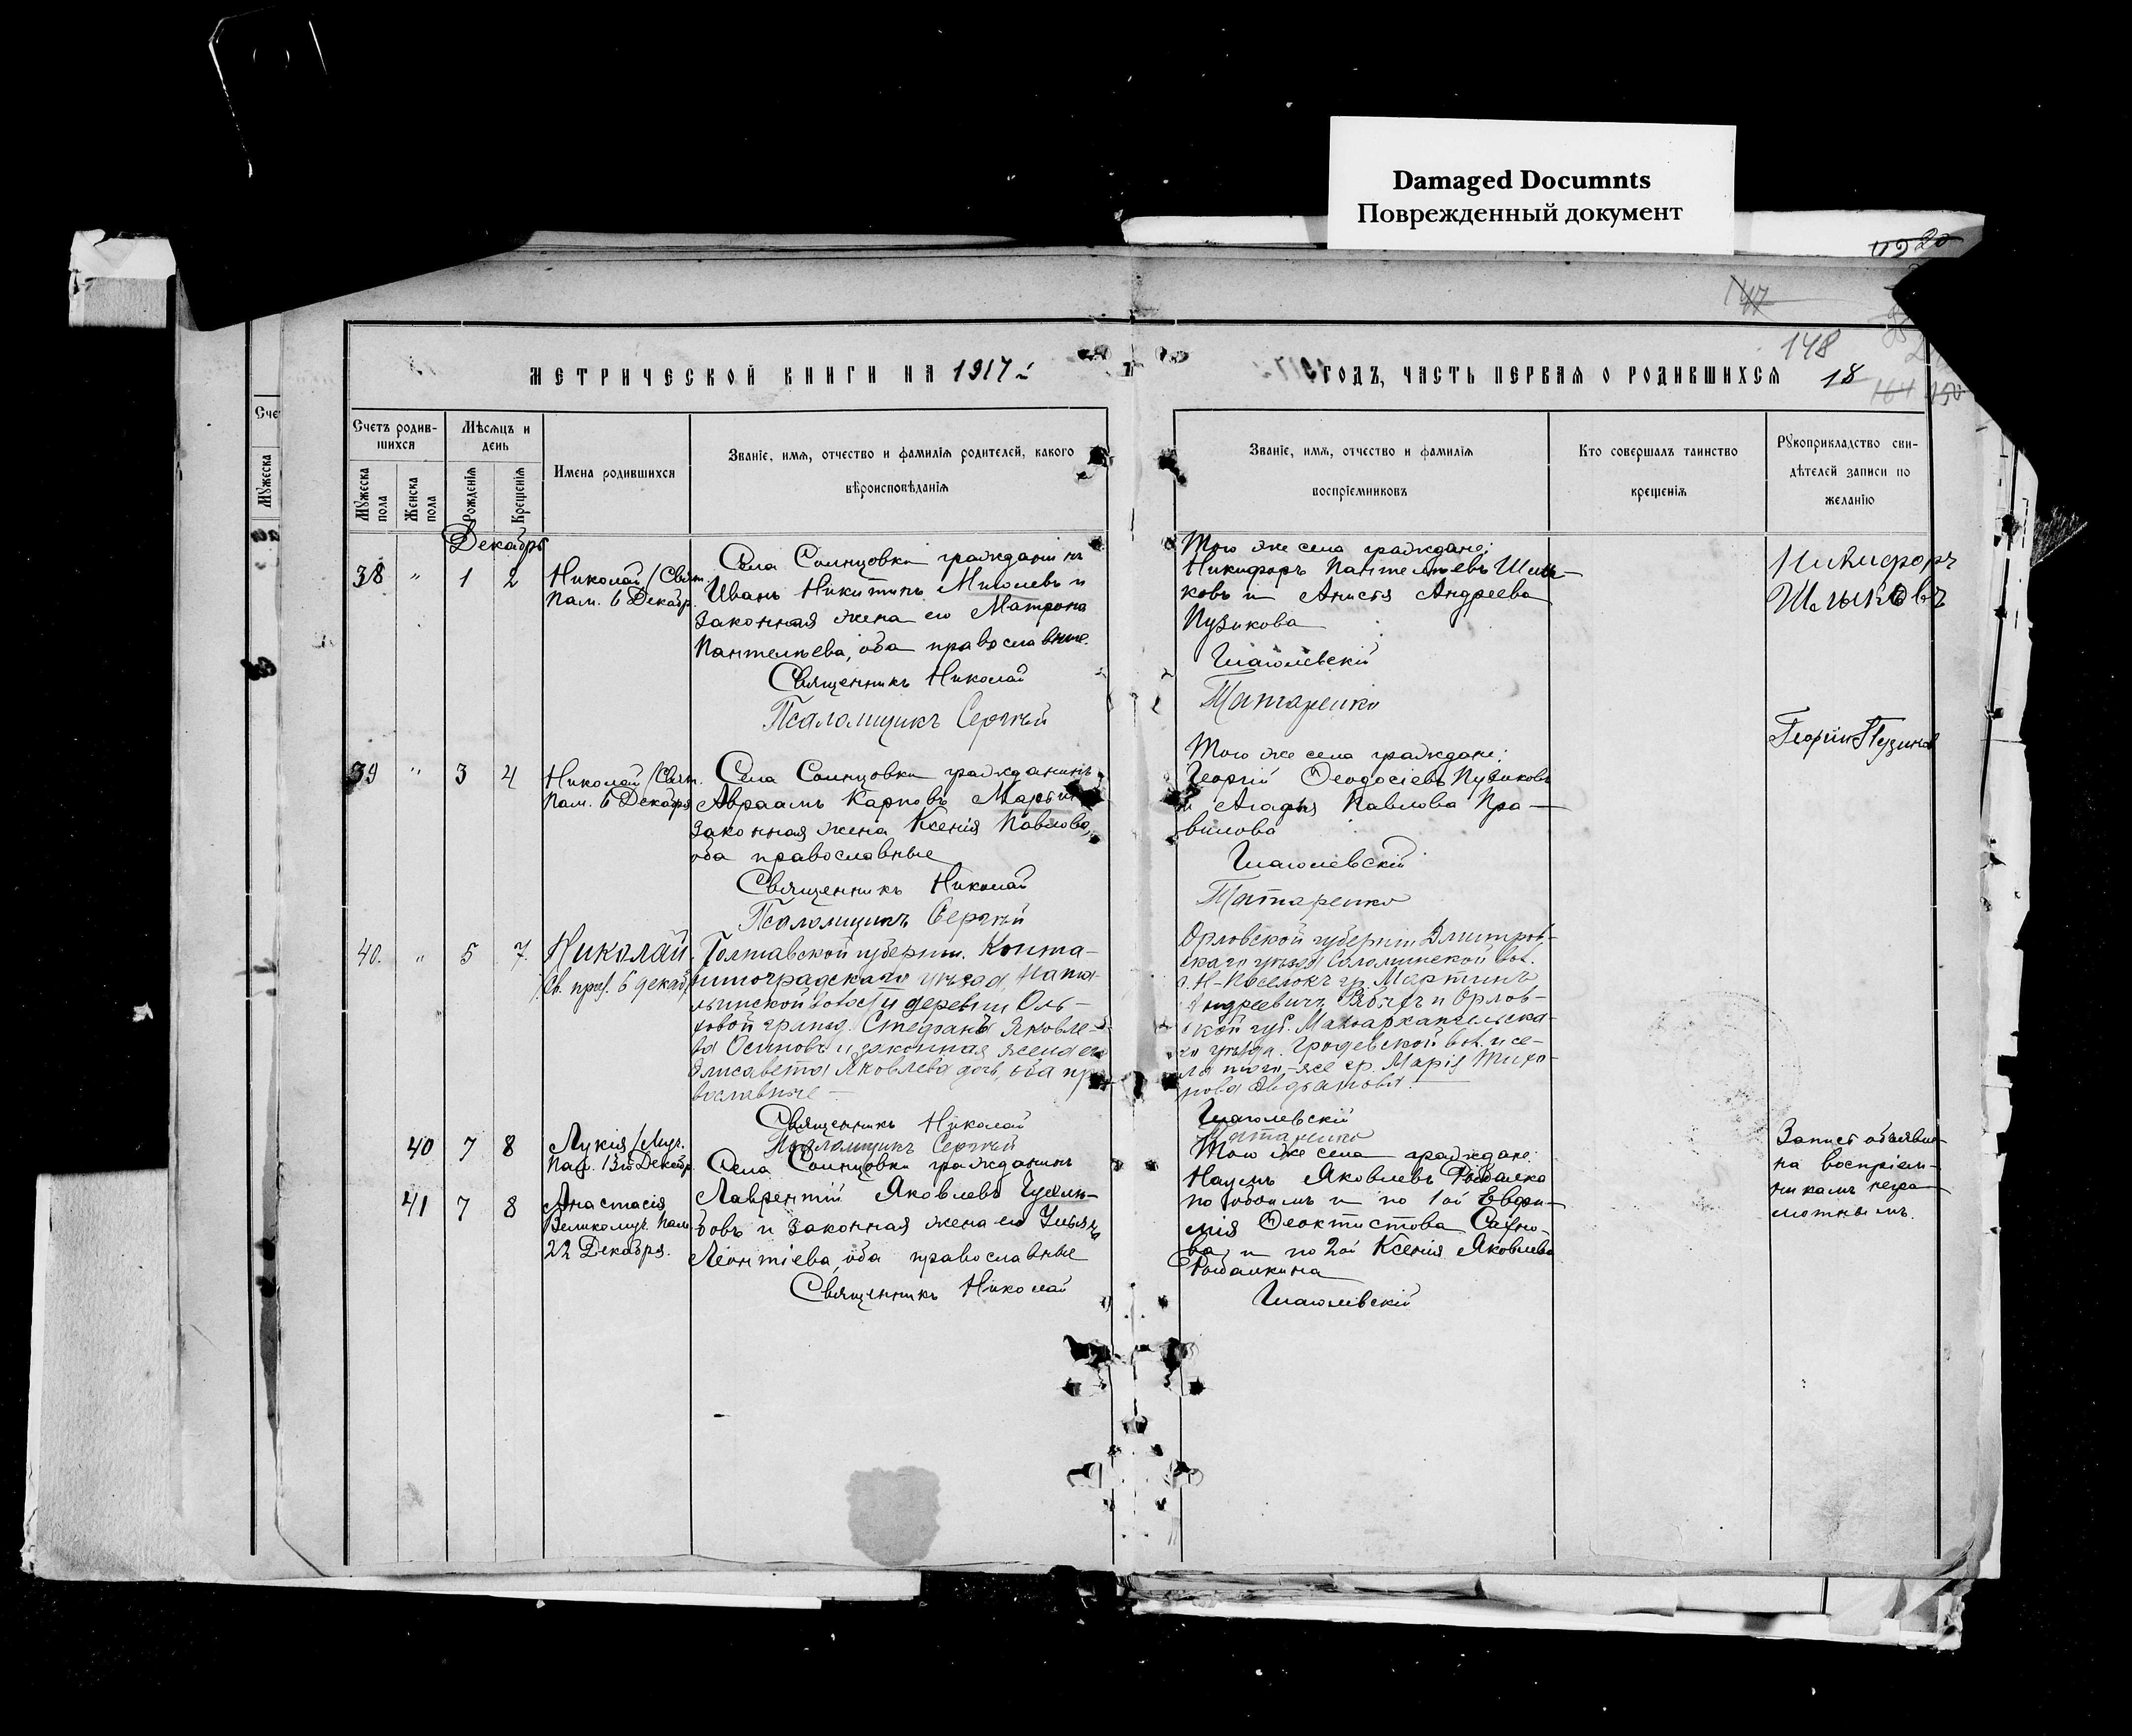 Damaged Documnts
Поврежденный документ
147
148
МЕТРИЧЕСКОЙ КНИГИ НА 1917 г
ГОДЪ, ЧАСТЬ ПЕРВАЯ О РОДИВШИХСЯ 18
Счетъ родив-
шихся
Мѣсяцъ и
день
Имена родившихся
Званіе, имя, отчество и фамилія родителей, какого
вѣроисповѣданія
Мужеска пола
Женска пола
Рожденія
Крещенія
Званіе, имя, отчество и фамилія
воспріемниковъ
Кто совершалъ таинство
крещенія
Рукоприкладство сви-
дѣтелей записи по
желанію
Декабрь
38 " 1 2
Николай /Свят.
Пам. 6 Декабр.
Села Солнцовки гражданинъ
Иванъ Никитинъ и
законная жена его Матрона
Пантелѣева, оба православные.
Священникъ Николай
Псаломщикъ Сергѣй
Того же села граждане:
Никифоръ Пантелѣевъ Шилы-
ковъ и Андреева
Пузикова
Глаголевскій
Татаренко
Никифоръ
39 " 3 4
Николай /Свят.
Пам. 6 Декабря
Села Солнцовки гражданинъ
Авраамъ Карповъ
законная жена Ксенія Павлова,
оба православные
Священникъ Николай
Псаломщикъ Сергѣй
Того же села граждане:
Георгій Ѳеодосіевъ Пузиковъ
и Агафья Павлова Пра-
вилова
Глаголевскій
Татаренко
Георгій Пузиковъ
40. " 5 7.
Николай.
Св. 6 декаб.
Полтавской губерніи, Конста-
нтиноградскаго уѣзда, Ната-
льинской волости деревни Оль-
ховой гражд. Стефанъ Яковле-
ва Осиповъ и законная жена его
Елисавета Яковлева дочь, оба пра
вославные
Священникъ Николай
Псаломщикъ Сергѣй
Орловской губерніи Дмитров-
скаго уѣзда Соломинской вол.
Н-Поселокъ гр. Мартинъ
Андреевичъ и Орлов-
ской губ. Малоархангельска-
го уѣзда. вол. и се-
ла того-же гр. Марія Тихо-
нова
Глаголевскій
Татаренко
40 7 8
Лукія /Муч.
Пам. 13го Декабр.
41 7 8
Анастасія
Великомуч. Пам.
22 Декабря.
Села Солнцовки гражданинъ
Лаврентій Яковлевъ
ровъ и законная жена его Ульяна
Леонтіева, оба православные
Священникъ Николай
Того же села граждане:
Наумъ Яковлевъ Рыбалко
по обоимъ и по 1ой Евфи-
мія Ѳеоктистова Сахно-
ва, и по 2ой Ксенія Яковлева
Рыбалкина
Глаголевскій
Запись объявле-
на воспріем-
никамъ негра-
мотнымъ.